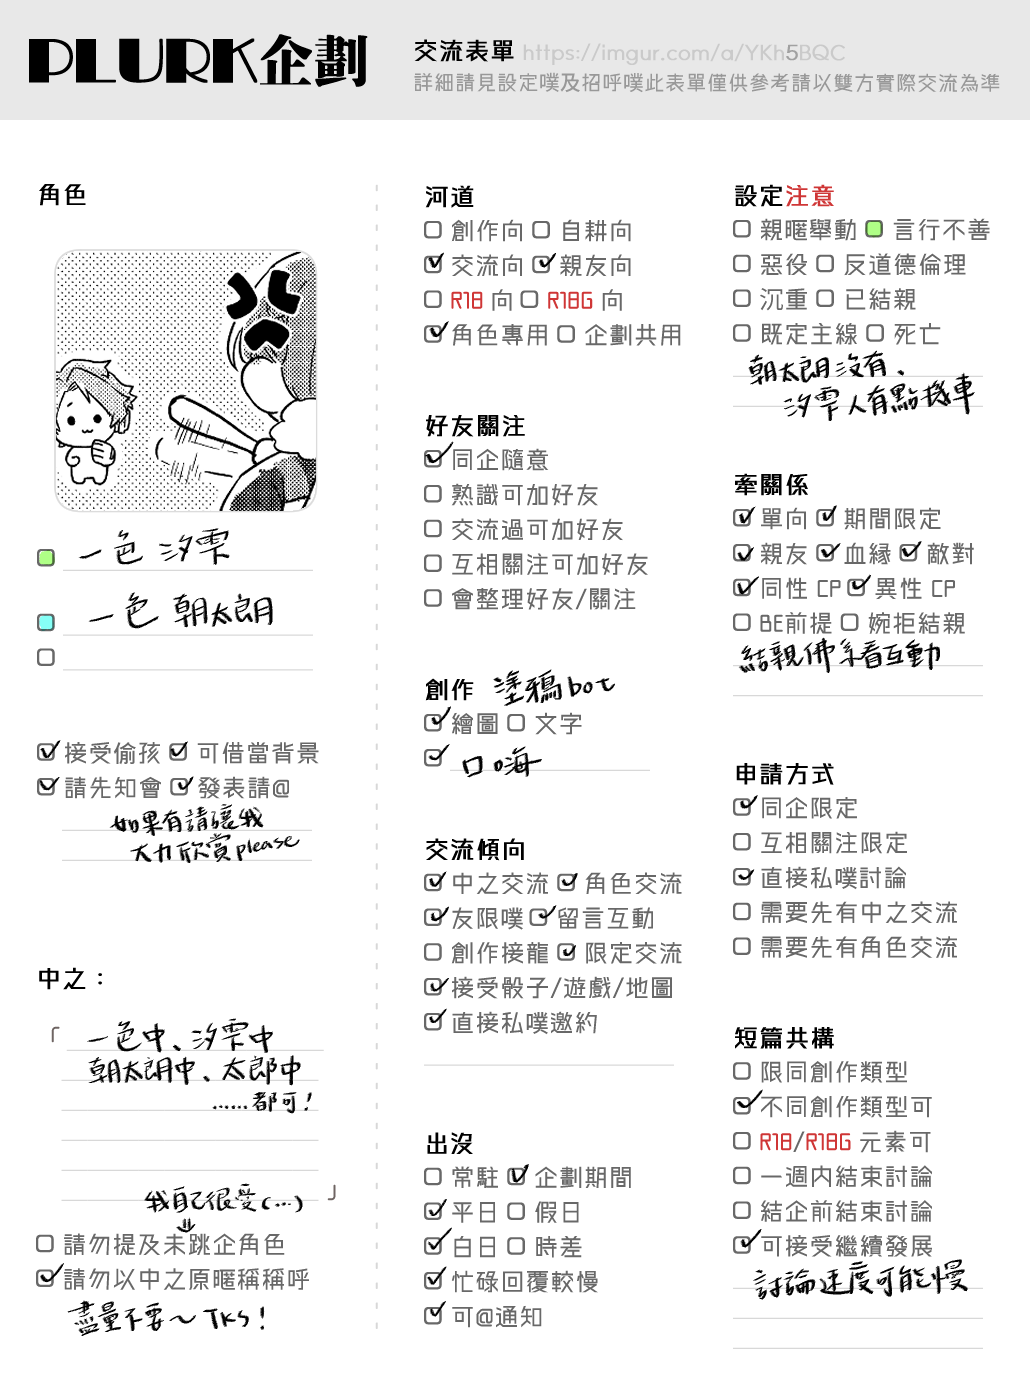 PLURK企劃
交流表單 https://imgur.com/a/YKh5BQC
詳細請見設定噗及招呼噗此表單僅供參考請以雙方實際交流為準
角色
一色 汐雫
一色 朝太朗
接受偷孩 可借當背景
請先知會 發表請@
如果有請讓我
大力欣賞please
中之：
「
一色中、汐雫中
朝太朗中、太郎中
……都可！
我自己很愛(…)
」
請勿提及未跳企角色
請勿以中之原暱稱稱呼
盡量不要～TKS！
河道
創作向 自耕向
交流向 親友向
R18 向 R18G 向
角色專用 企劃共用
好友關注
同企隨意
熟識可加好友
交流過可加好友
互相關注可加好友
會整理好友/關注
創作 塗鴉bot
繪圖 文字
口嗨
交流傾向
中之交流 角色交流
友限噗 留言互動
創作接龍 限定交流
接受骰子/遊戲/地圖
直接私噗邀約
出沒
常駐 企劃期間
平日 假日
白日 時差
忙碌回覆較慢
可@通知
設定注意
親暱舉動 言行不善
惡役 反道德倫理
沉重 已結親
既定主線 死亡
朝太朗沒有、
汐雫人有點機車
牽關係
單向 期間限定
親友 血緣 敵對
同性 CP 異性 CP
BE前提 婉拒結親
結親佛系看互動
申請方式
同企限定
互相關注限定
直接私噗討論
需要先有中之交流
需要先有角色交流
短篇共構
限同創作類型
不同創作類型可
R18/R18G 元素可
一週內結束討論
結企前結束討論
可接受繼續發展
討論速度可能慢